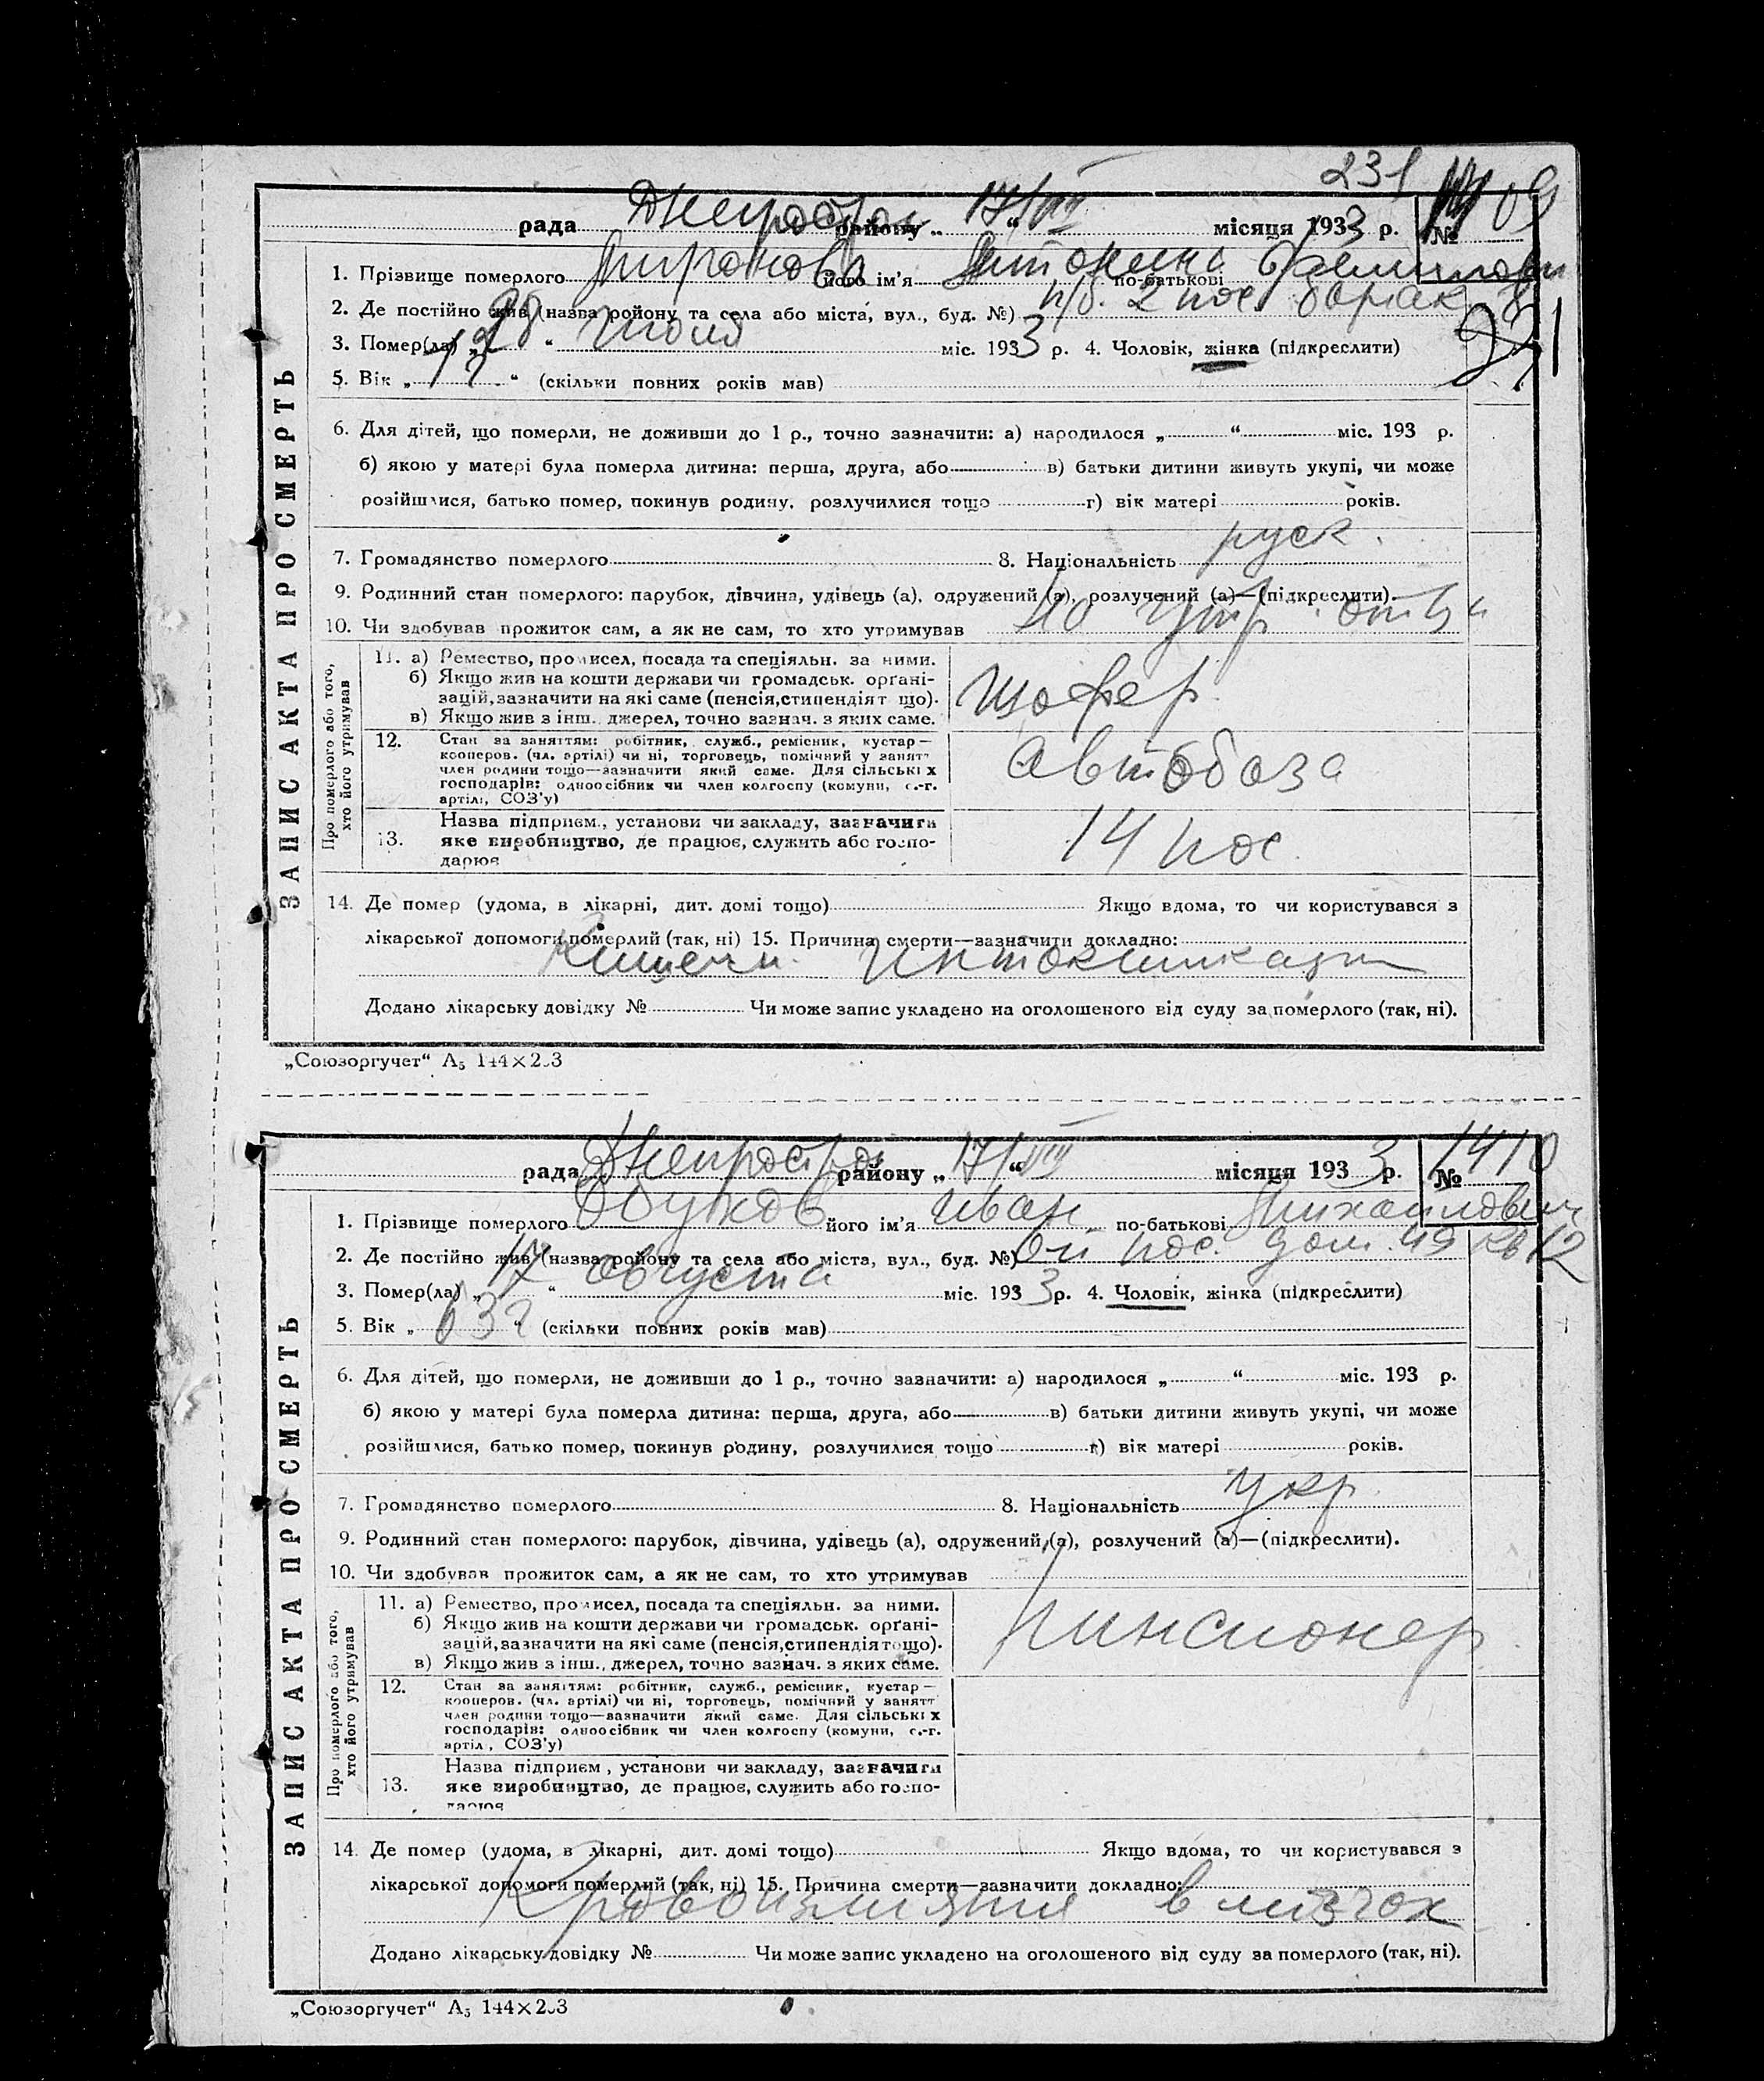 231
рада Днепрострой району „ 17/VIII “ місяця 1933 р. № 1409
1. Прізвище померлого Миронова його ім'я Антонина по-батькові
2. Де постійно жив (назва району та села або міста, вул., буд. №) п/б. 2 пос. барак 8
231
3. Помер(ла) „ 28 “ июля міс. 1933 р. 4. Чоловік, жінка (підкреслити)
5. Вік „ “ (скільки повних років мав)
6. Для дітей, що померли, не доживши до 1 р., точно зазначити: а) народилося „ “ міс. 193 р.
б) якою у матері була померла дитина: перша, друга, або в) батьки дитини живуть укупі, чи може
розійшлися, батько помер, покинув родину, розлучилися тощо г) вік матері років.
7. Громадянство померлого 8. Національність руск.
9. Родинний стан померлого: парубок, дівчина, удівець (а), одружений (а), розлучений (а)—(підкреслити).
10. Чи здобував прожиток сам, а як не сам, то хто утримував отца
11. а) Ремество, промисел, посада та спеціяльн. за ними.
б) Якщо жив на кошти держави чи громадськ. орґані-
зацій, зазначити на які саме (пенсія, стипендія т що).
в) Якщо жив з інш., джерел, точно зазнач. з яких саме.
шофер
12. Стан за заняттям: робітник, служб., ремісник, кустар—
кооперов. (чл. артілі) чи ні, торговець, помічний у занят
член родини тощо—зазначити який саме. Для сільських
господарів: одноосібник чи член колгоспу (комуни, с.-г.
артілі, СОЗ'у)
автобаза
13. Назва підприєм., установи чи закладу, зазначити
яке виробництво, де працює, служить або госпо-
дарює
14 пос.
14. Де помер (удома, в лікарні, дит. домі тощо) Якщо вдома, то чи користувався з
лікарської допомоги померлий (так, ні) 15. Причина смерти—зазначити докладно:
Кишечн. интоксикация
Додано лікарську довідку № Чи може запис укладено на оголошеного від суду за померлого (так, ні).
ЗАПИС АКТА ПРО СМЕРТЬ
Про померлого або того,
хто його утримував
„Союзоргучет“ А5 144×203
рада Днепрострой району „ 17/VIII “ місяця 1933 р. № 1410
1. Прізвище померлого його ім'я Иван по-батькові Михайлович
2. Де постійно жив (назва району та села або міста, вул., буд. №) 6й пос. дом. 49 кв 12
3. Помер(ла) „ 17 “ августа міс. 1933 р. 4. Чоловік, жінка (підкреслити)
5. Вік „ 63 г “ (скільки повних років мав)
6. Для дітей, що померли, не доживши до 1 р., точно зазначити: а) народилося „ “ міс. 193 р.
б) якою у матері була померла дитина: перша, друга, або в) батьки дитини живуть укупі, чи може
розійшлися, батько помер, покинув родину, розлучилися тощо г) вік матері років.
7. Громадянство померлого 8. Національність укр.
9. Родинний стан померлого: парубок, дівчина, удівець (а), одружений (а), розлучений (а)—(підкреслити).
10. Чи здобував прожиток сам, а як не сам, то хто утримував
11. а) Ремество, промисел, посада та спеціяльн. за ними.
б) Якщо жив на кошти держави чи громадськ. орґані-
зацій, зазначити на які саме (пенсія, стипендія тощо).
в) Якщо жив з інш., джерел, точно зазнач. з яких саме.
пинсионер.
12. Стан за заняттям: робітник, служб., ремісник, кустар—
кооперов. (чл. артілі) чи ні, торговець, помічний у занятт
член родини тощо—зазначити який саме. Для сільських
господарів: одноосібник чи член колгоспу (комуни, с.-г.
артіл , СОЗ'у)
13. Назва підприєм , установи чи закладу, зазначити
яке виробництво, де працює, служить або госпо-
дарює
14. Де помер (удома, в лікарні, дит. домі тощо) Якщо вдома, то чи користувався з
лікарської допомоги померлий (так, ні) 15. Причина смерти—зазначити докладно:
Кровоизлияния в мозгох
Додано лікарську довідку № Чи може запис укладено на оголошеного від суду за померлого (так, ні).
ЗАПИС АКТА ПРО СМЕРТЬ
Про померлого або того,
хто його утримував
„Союзоргучет“ А5 144×203